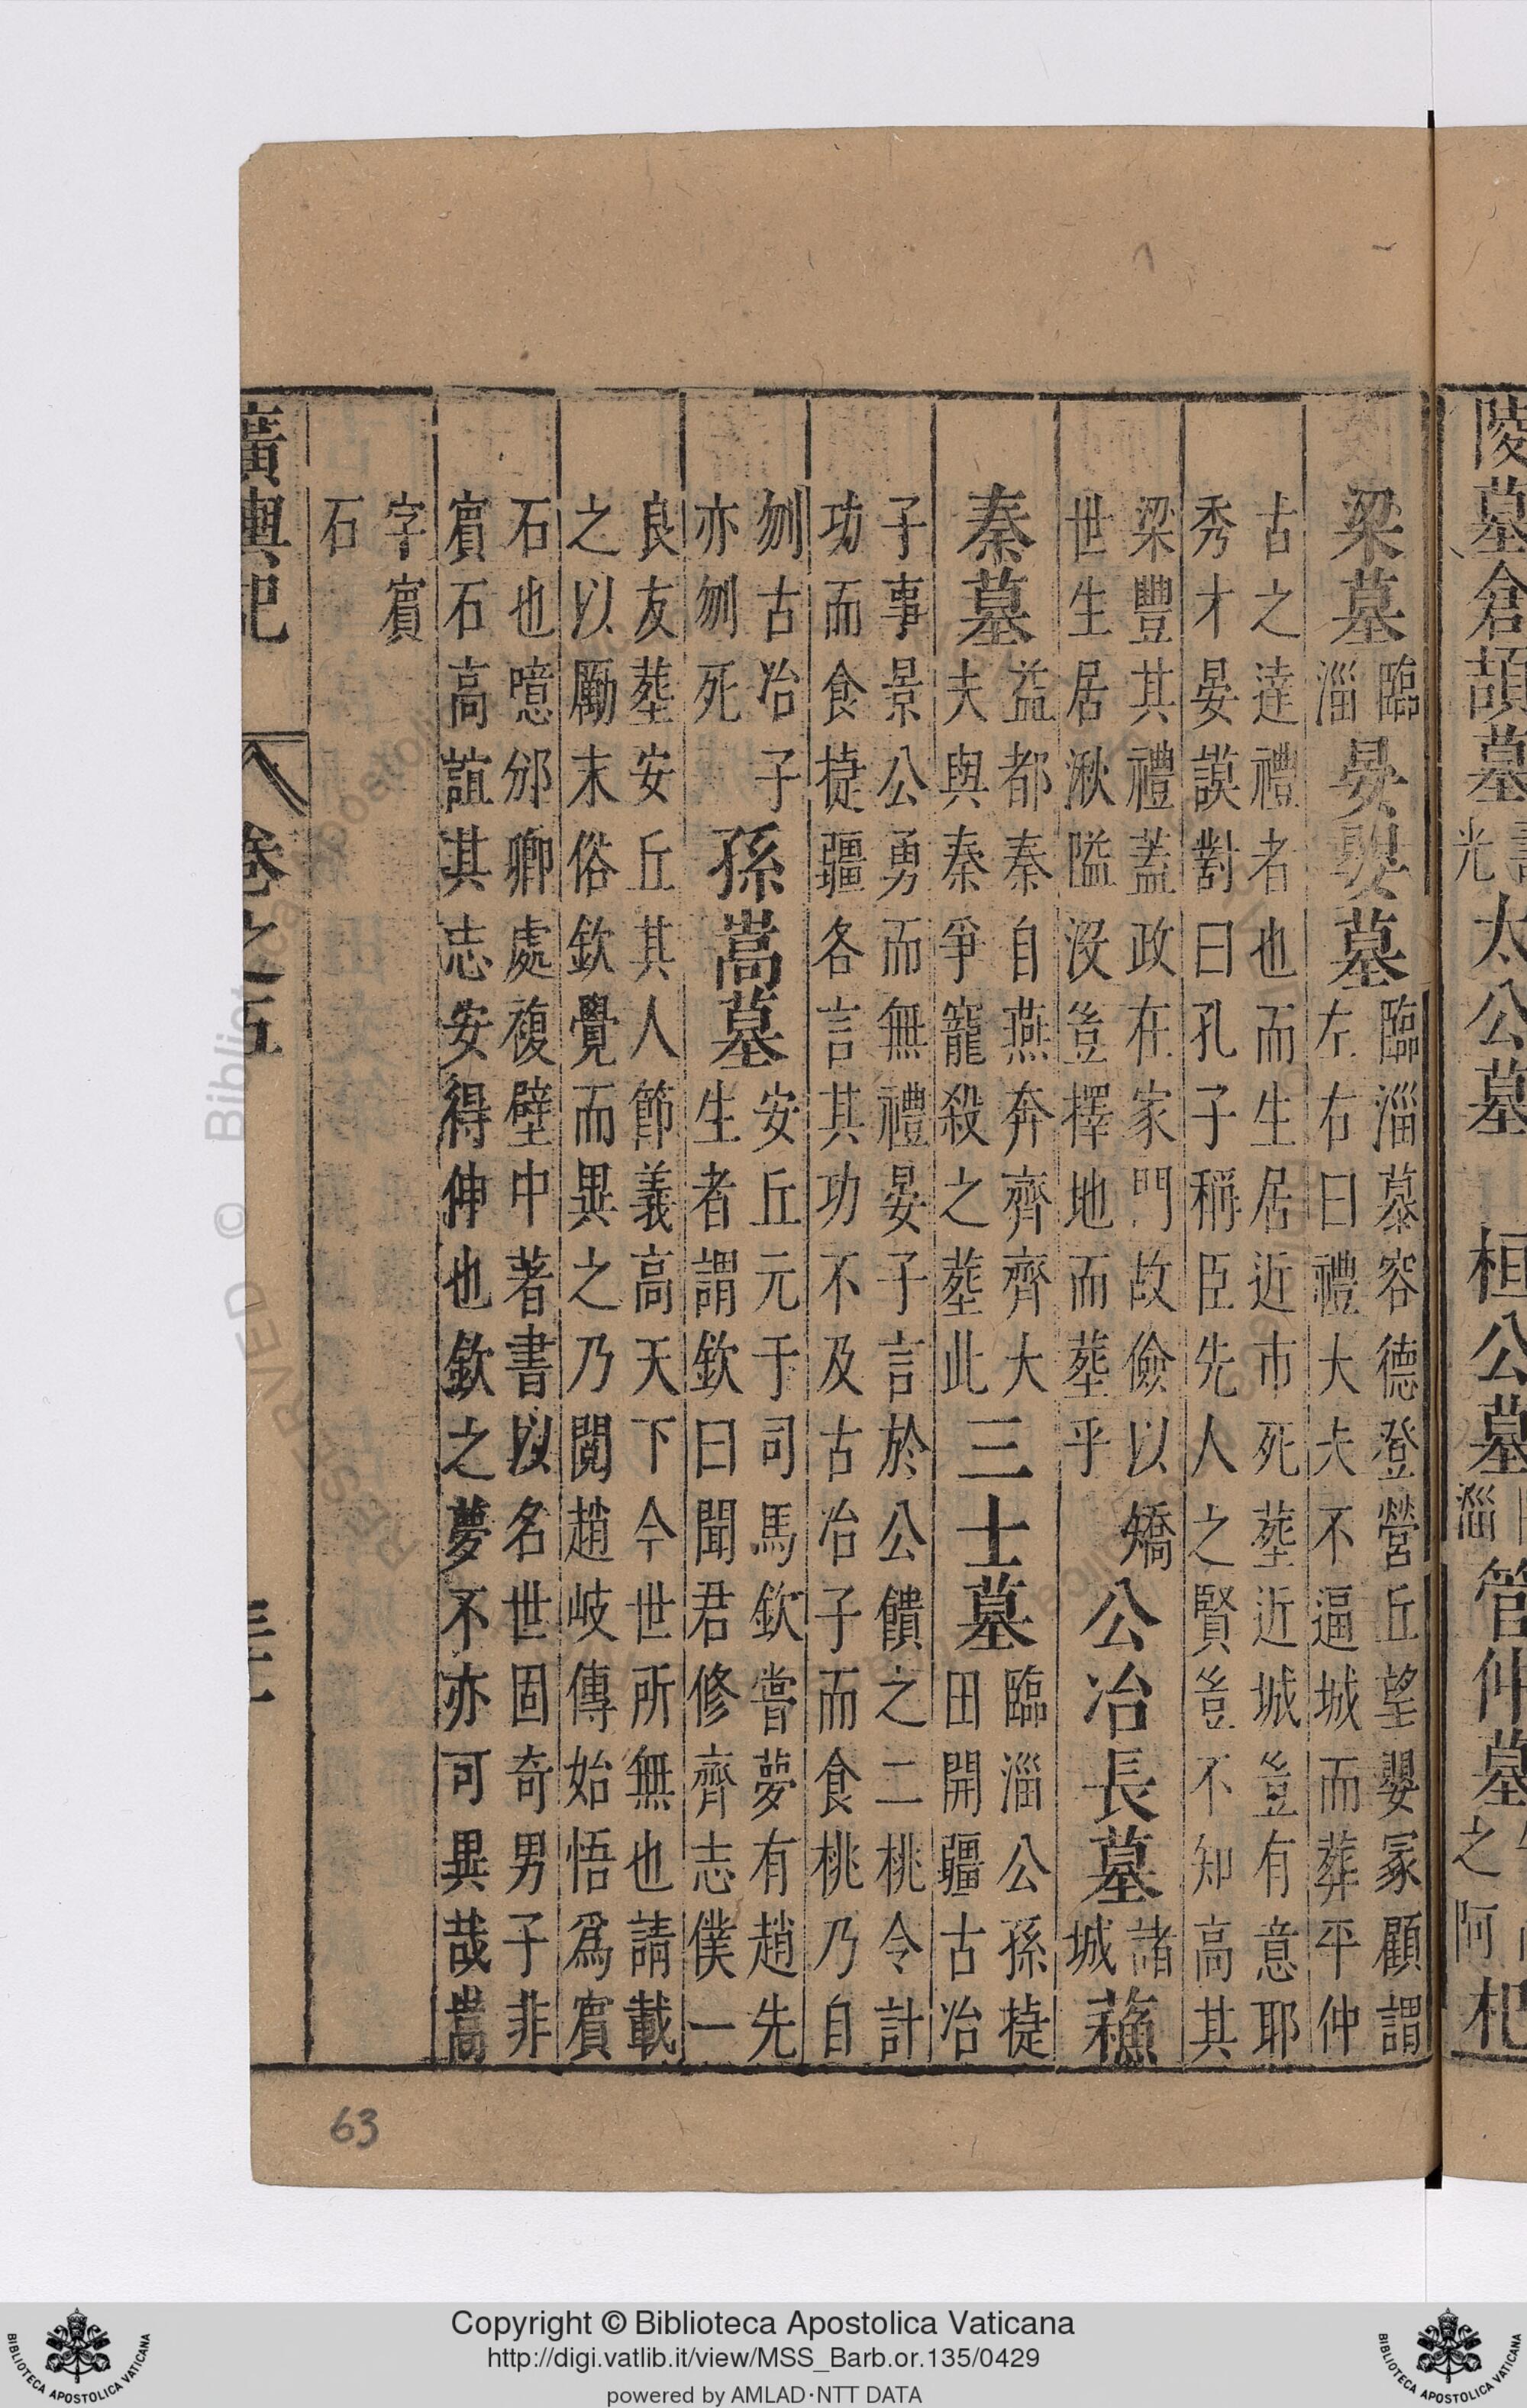 陵墓倉頡墓
光
太公墓
桓公墓
淄
管仲墓
之阿
杞
梁墓
臨
淄
晏嬰墓
臨淄慕容德登營丘望嬰冢顧謂
左右曰禮大夫不逼城而葬平仲
古之逹禮者也而生居近市死葬近城豈有意耶
秀才晏謨對曰孔子稱臣先人之賢豈不知高其
梁豐其禮蓋政在家門故儉以矯
世生居湫隘沒豈擇地而葬乎
公冶長墓
諸
城
蘓
秦墓
益都秦自燕奔齊齊大
夫與秦爭寵殺之葬此
三士墓
臨淄公孫㨗
田開疆古冶
子事景公勇而無禮晏子言於公饋之二桃令計
功而食㨗疆各言其功不及古冶子而食桃乃自
刎古冶子
亦刎死
孫嵩墓
安丘元于司馬欽嘗夢有趙先
生者謂欽曰聞君修齊志僕一
良友葬安丘其人節義高天下今世所無也請載
之以勵末俗欽覺而異之乃閱趙岐傳始悟爲賔
石也噫邠卿處複壁中著書以名世固奇男子非
賔石高誼其志安得伸也欽之夢不亦可異哉嵩
字賔
石
廣輿記
卷之五
63
Copyright © Biblioteca Apostolica Vaticana
http://digi.vatlib.it/view/MSS_Barb.or.135/0429
powered by AMLAD·NTT DATA